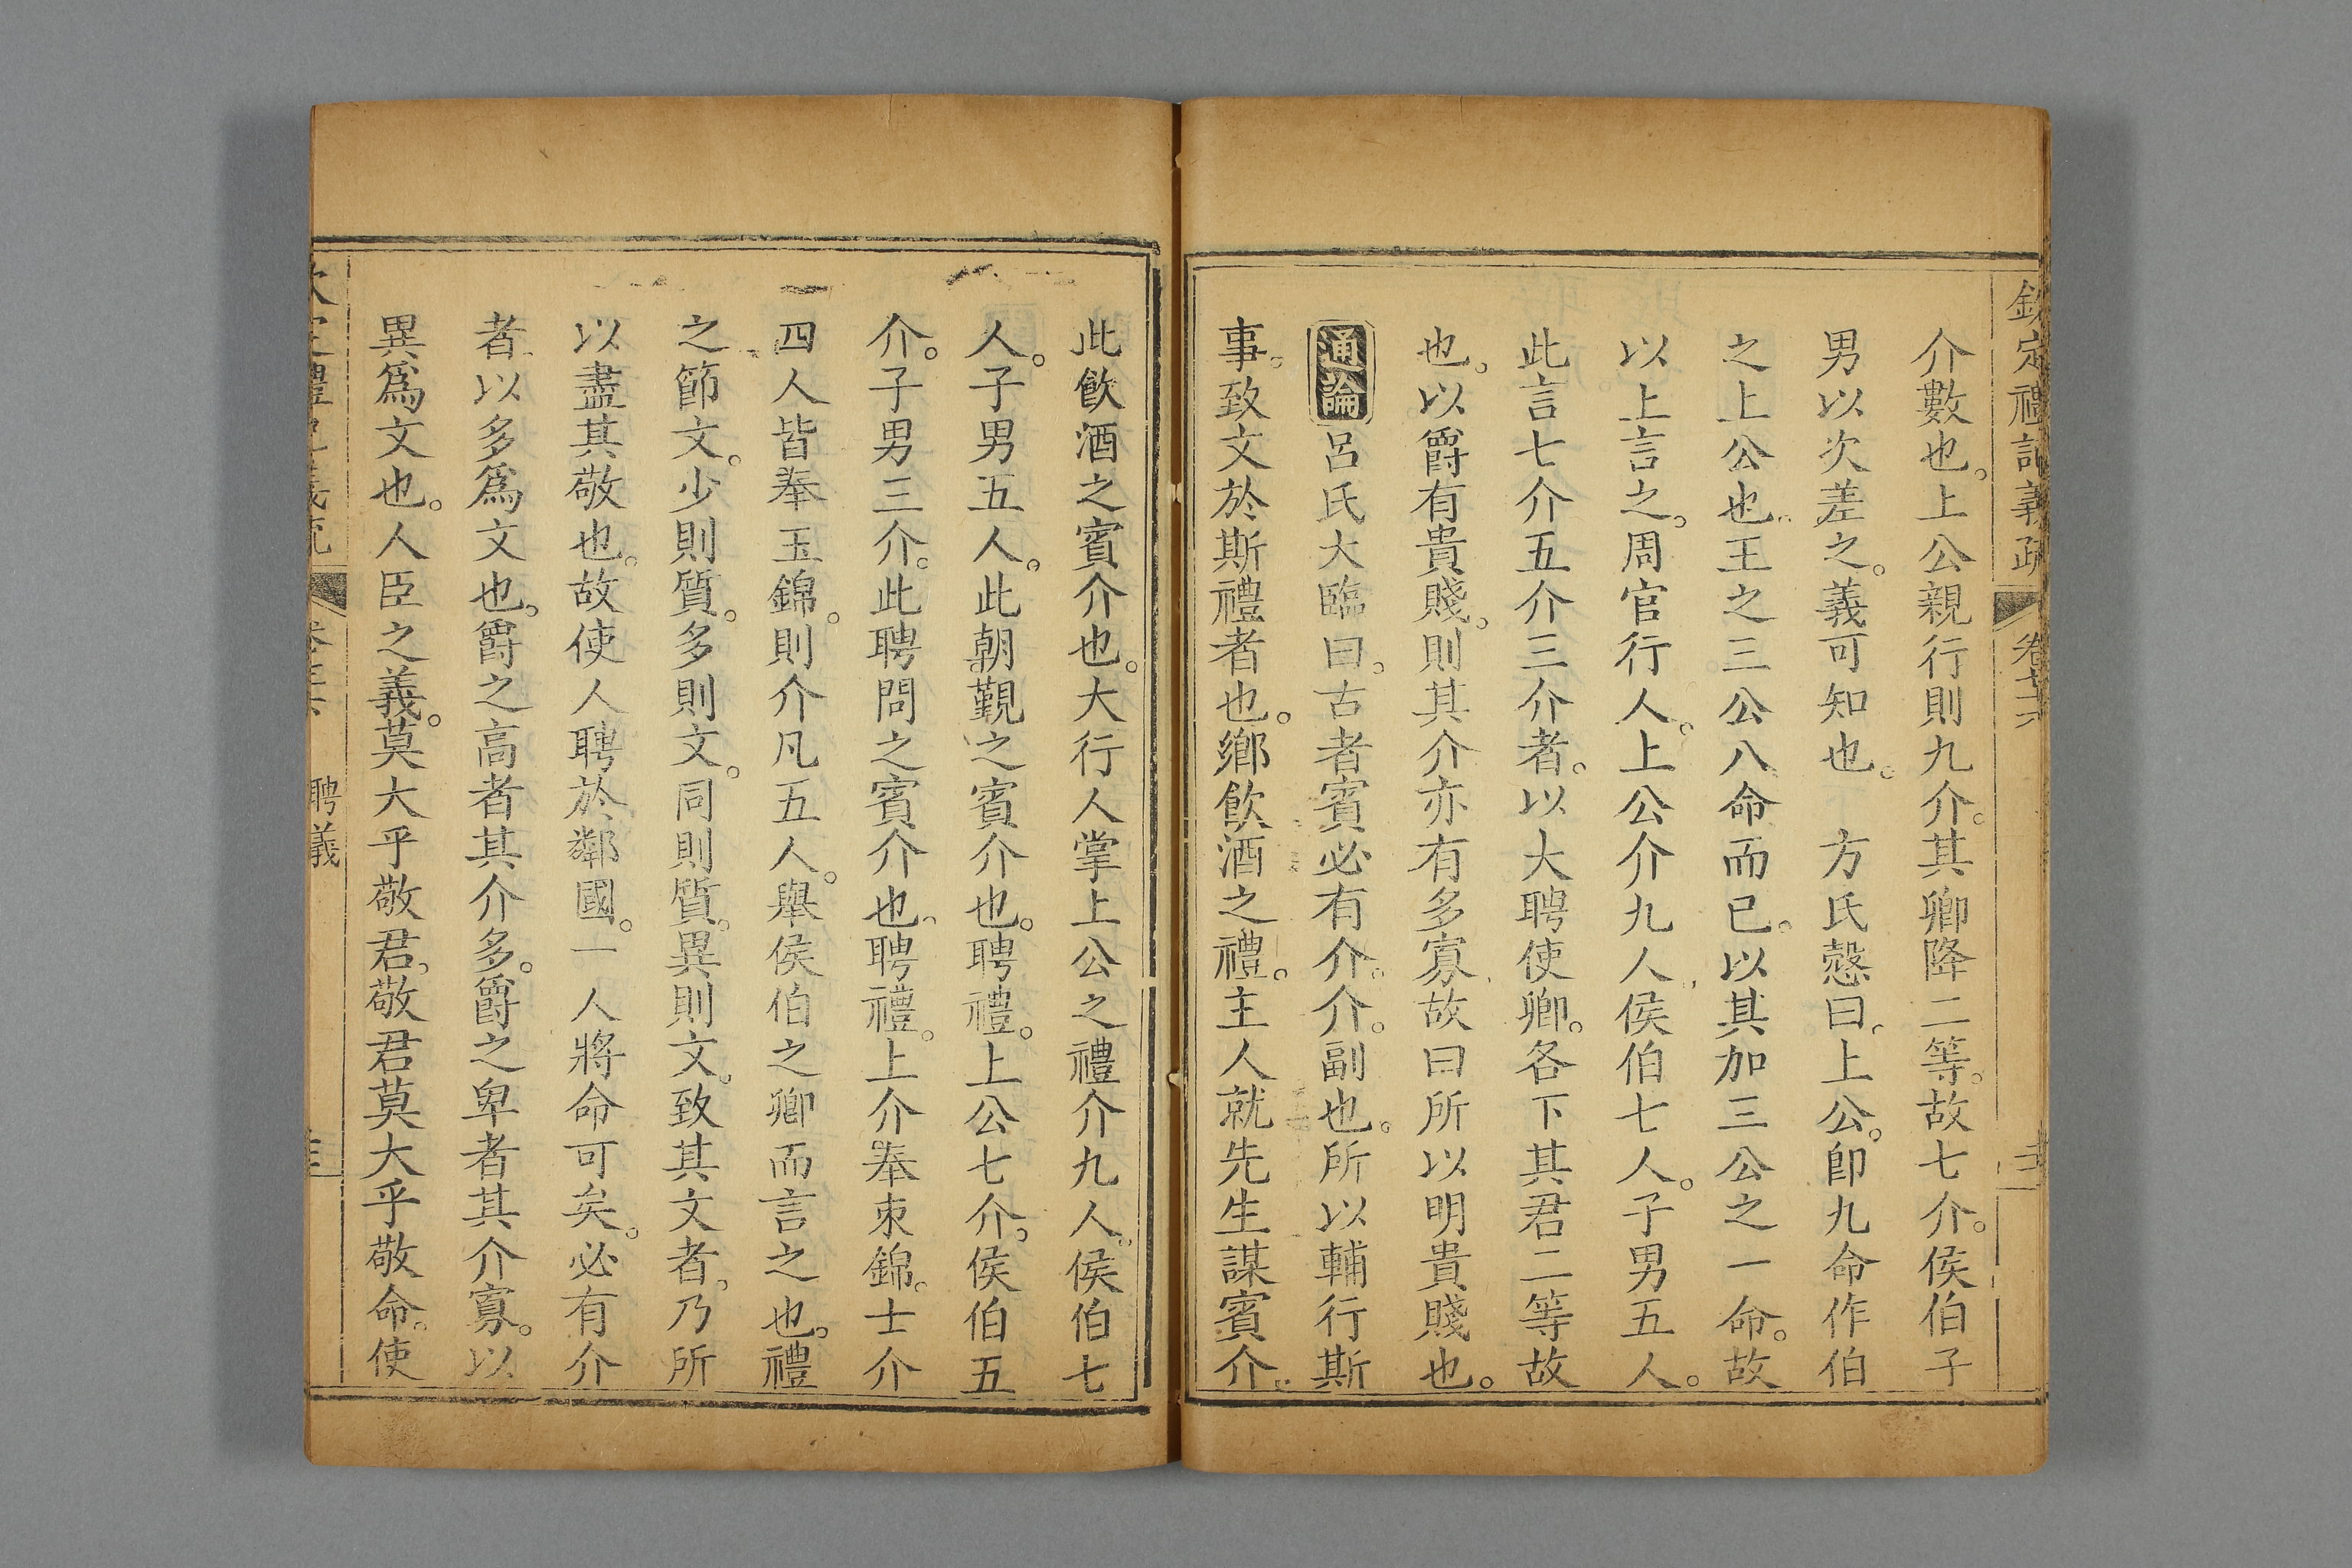 欽定禮記義疏 卷七十六
介數也。上公親行則九介。其卿降二等。故七介。侯伯子
男以次差之。義可知也。 方氏慤曰。上公。卽九命作伯
之上公也。王之三公八命而已。以其加三公之一命。故
以上言之。周官行人。上公介九人。侯伯七人。子男五人。
此言七介五介三介者。以大聘使卿。各下其君二等故
也。以爵有貴賤。則其介亦有多寡。故曰所以明貴賤也。
通論 呂氏大臨曰。古者賓必有介。介。副也。所以輔行斯
事。致文於斯禮者也。鄉飲酒之禮。主人就先生謀賓介。
此飲酒之賓介也。大行人掌上公之禮介九人。侯伯七
人。子男五人。此朝覲之賓介也。聘禮。上公七介。侯伯五
介。子男三介。此聘問之賓介也。聘禮。上介奉束錦。士介
四人皆奉玉錦。則介凡五人。舉侯伯之卿而言之也。禮
之節文。少則質。多則文。同則質。異則文。致其文者。乃所
以盡其敬也。故使人聘於鄰國。一人將命可矣。必有介
者。以多爲文也。爵之高者其介多。爵之卑者其介寡。以
異爲文也。人臣之義。莫大乎敬君。敬君莫大乎敬命。使
聘義